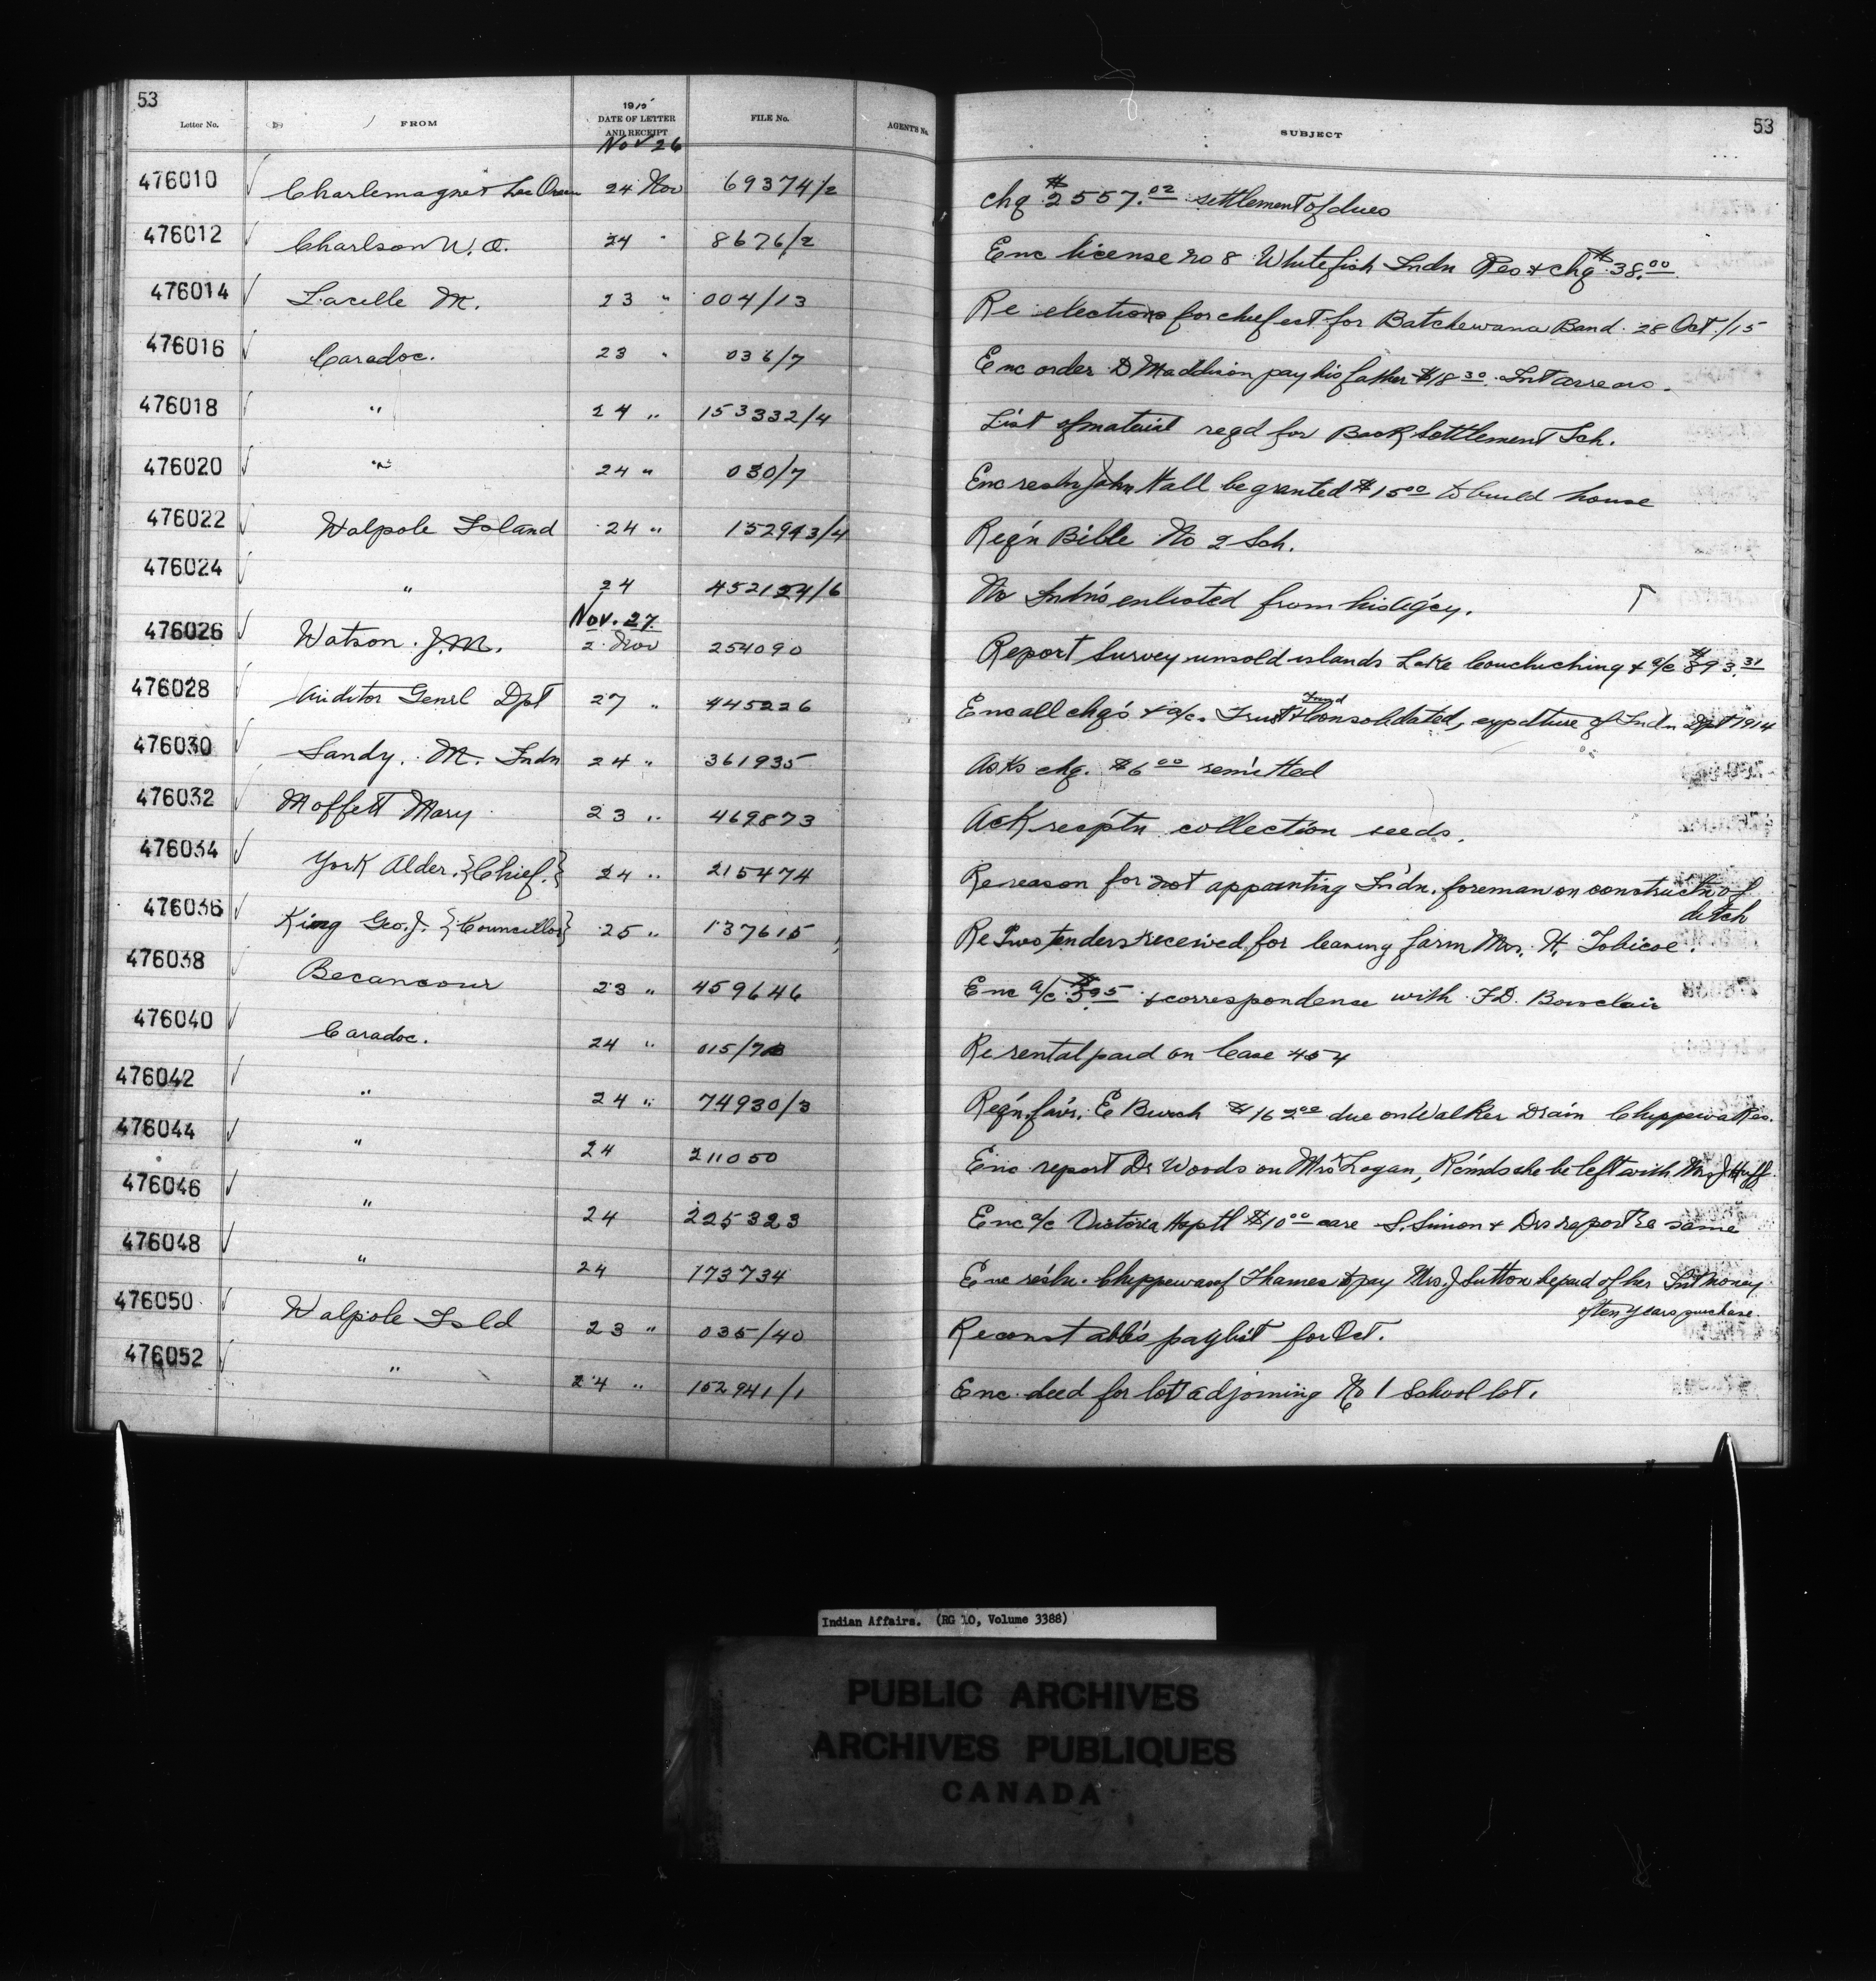 53
53
Letter No. FROM 1915 DATE OF LETTER AND RECEIPT FILE No. AGENT'S No. SUBJECT
Nov 26
476010 Charlemagne & Lac 24 Nov 69374/2 chq $2557.02 settlement of dues
476012 Charlson W. O. 24 " 8676/2 Enc license no 8 Whitefish Indn Res & chq $38.00
476014 M. 23 " 004/13 Re elections for chief est. for Batchewana Band. 28 Oct./15
476016 Caradoc. 23 " 036/7 Enc order D Maddison pay his father $18.30 Int arrears.
476018 " 24 " 153332/4 List of material reqd for Back Settlement Sch.
476020 " 24 " 030/7 Enc resln John Hall be granted $15.00 to build house
476022 Walpole Island 24 " 152943/4 Reg'n Bible No 2 Sch.
476024 " 24 452124/6 No Indn's enlisted from his ag'cy.
Nov. 27
476026 Watson. J.M. 2 Nov 254090 Report Survey unsold islands Lake Couchiching & a/c $893.31
476028 Auditor Genrl Dpt 27 " 445226 Enc all chq's & a/c. Trust & Consolidated Fund, expdture of Indn Dpt 1914
476030 Sandy. M. Indn 24 " 361935 Asks chq. $6.00 remitted
476032 Moffett Mary 23 " 469873 Ack recptn collection seeds.
476034 York Alder. {Chief.} 24 " 215474 Re reason for not appointing Indn. foreman on constructn of
ditch
476036 King Geo. J. {Councillor} 25 " 137615 Re Two tenders received for leasing farm Mrs. H. Tobicoe.
476038 Becancour 23 " 459646 Enc a/c $3.95 & correspondence with F.D. Boisclair
476040 Caradoc. 24 " 015/7 Re rental paid on lease 454
476042 " 24 " 74930/3 Reg'n favr. E Burch $162.00 due on Walker Drain Chippewa Res.
476044 " 24 211050 Enc report Dr Woods on Mrs Logan, Re'mds she be left with Mrs J Huff
476046 " 24 225323 Enc a/c Victoria Hsptl $10.00 care S. Simon & Drs report re same
476048 " 24 173734 Enc res'ln. Chippewas of Thames to pay Mrs. J Sutton be paid of her Int money
often years purchase
476050 Walpole Isld 23 " 035/40 Re constable's paylist for Oct.
476052 " 24 " 152941/1 Enc deed for lot adjoining No 1 School lot.
Indian Affairs. (RG 10, Volume 3388)
PUBLIC ARCHIVES
ARCHIVES PUBLIQUES
CANADA